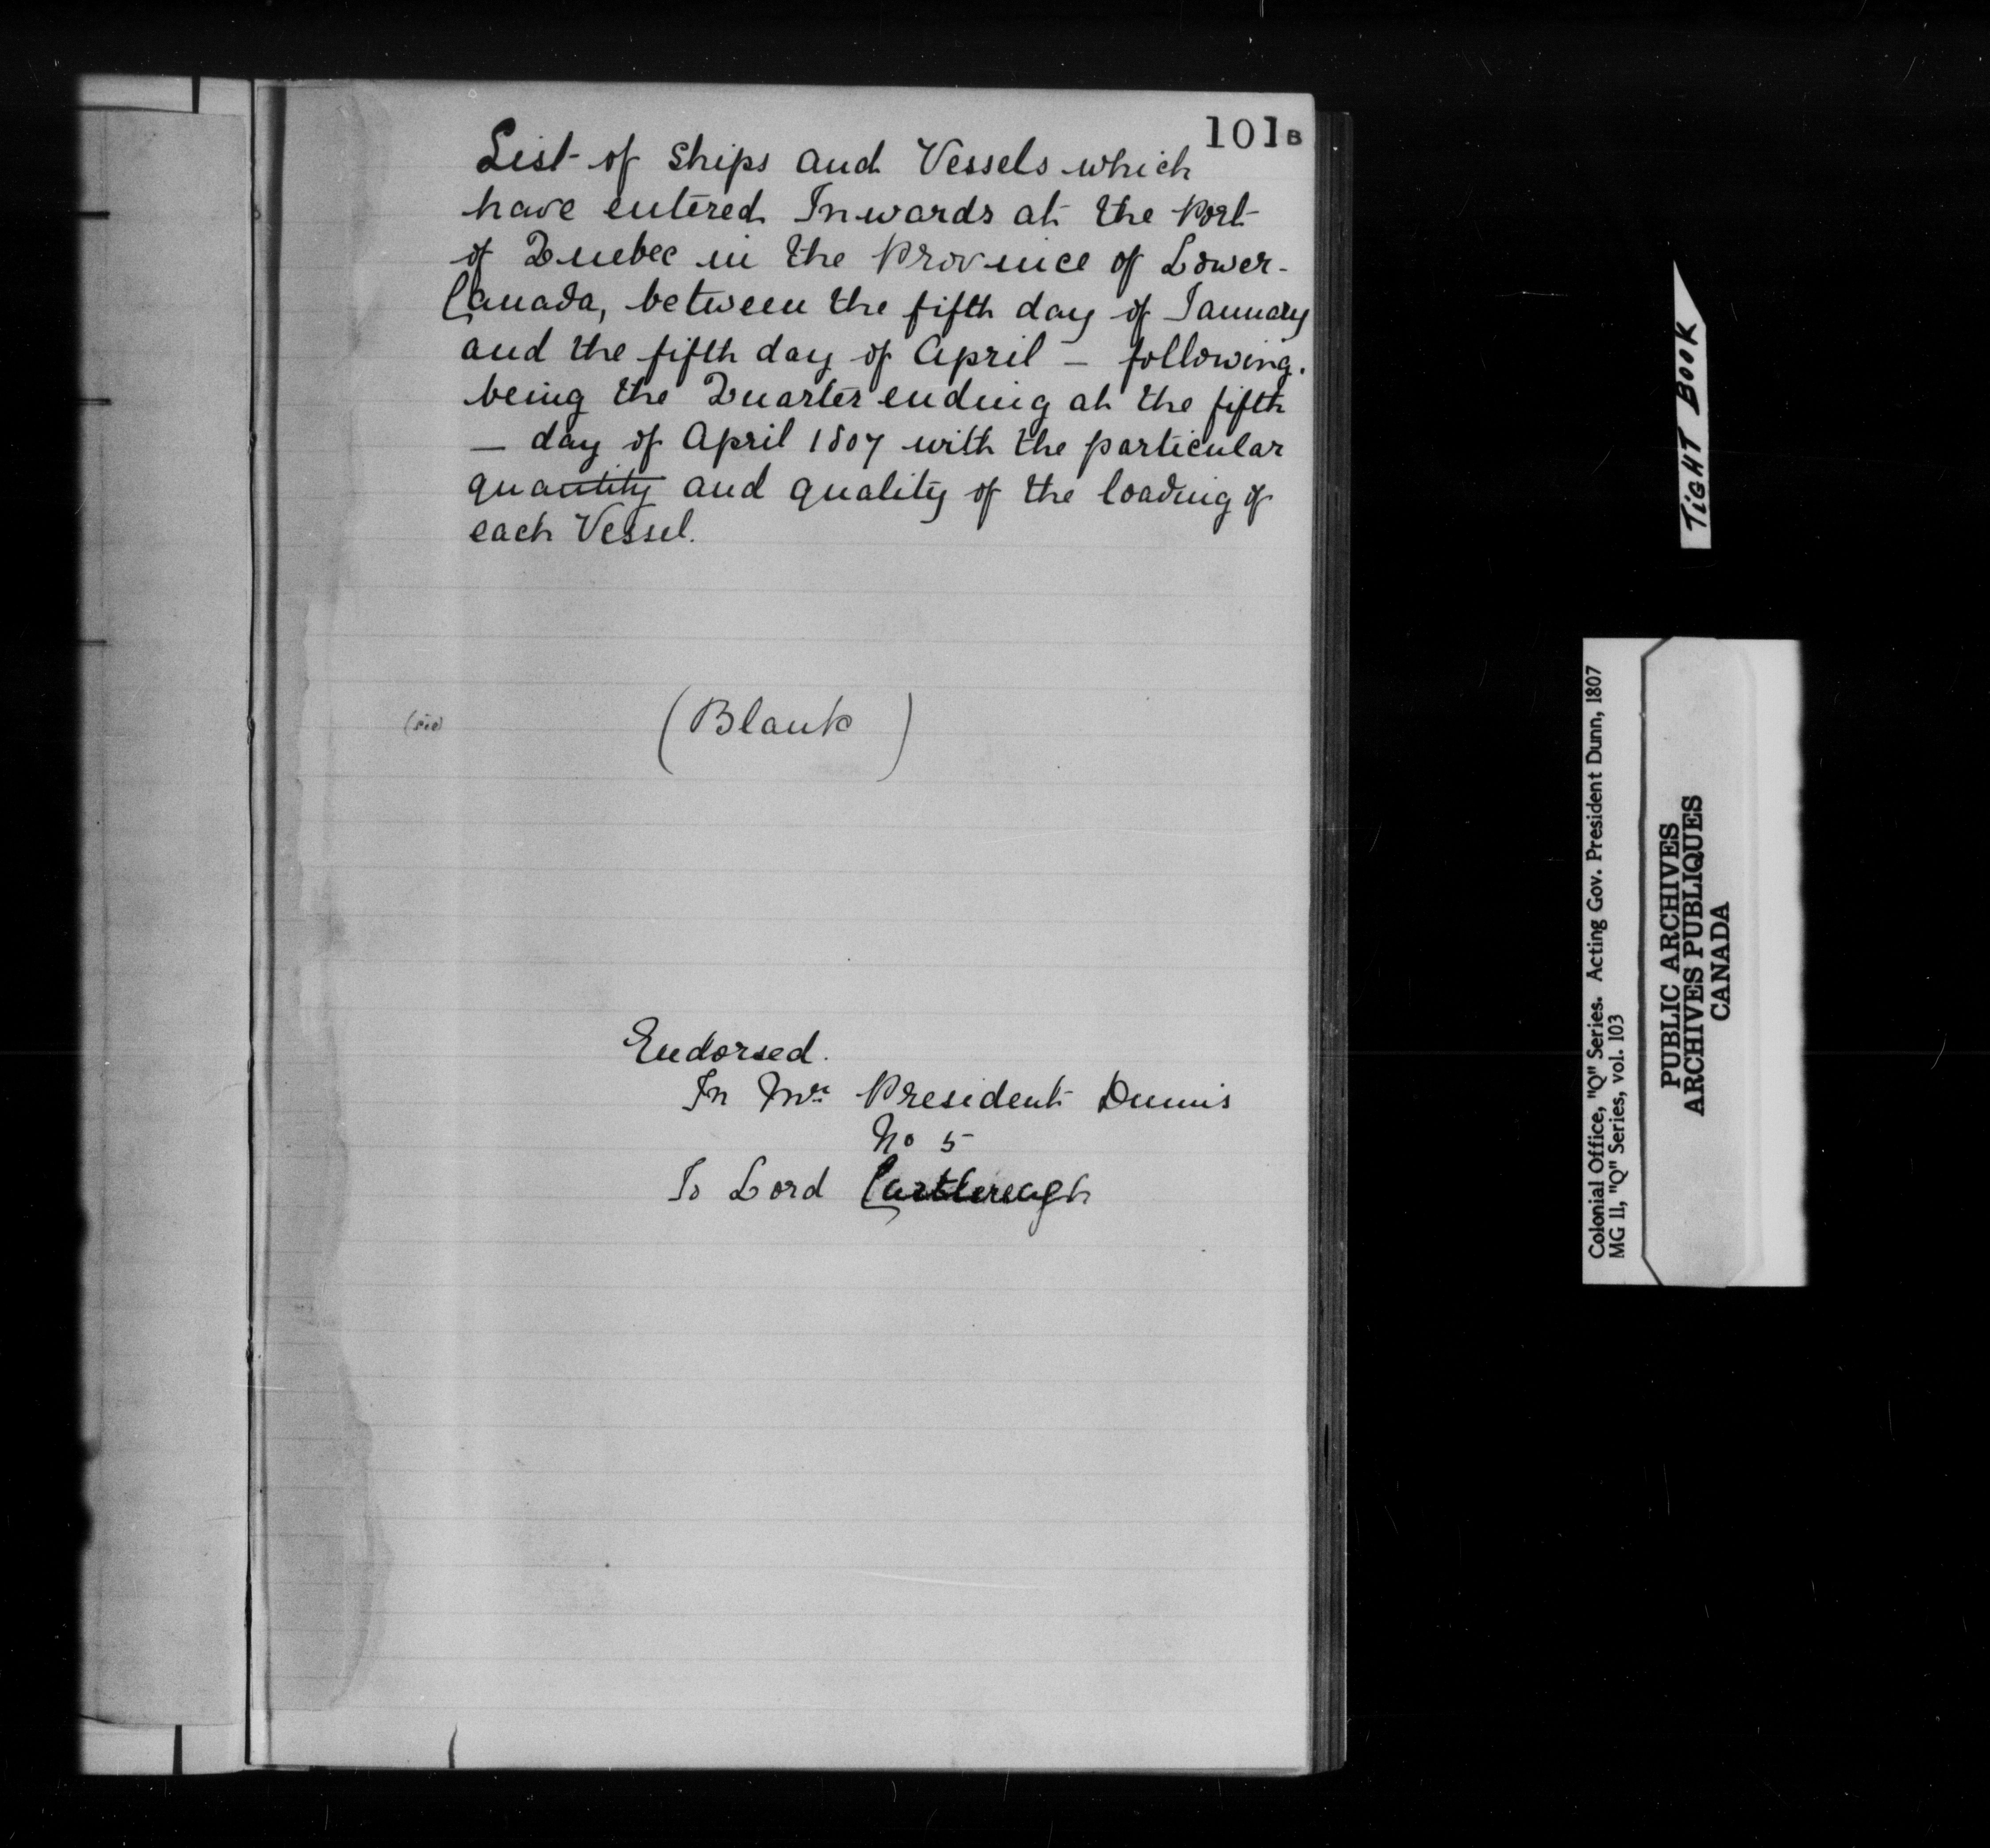 101B
List of Ships and Vessels which
have entered Inwards at the Port
of Quebec in the Province of Lower-
Canada, between the fifth day of January
and the fifth day of April - following.
being the Quarter ending at the fifth
- day of April 1807 with the particular
quantity and quality of the loading of
each Vessel.
(sic) (Blank)
Endorsed.
In Mr. President Dunn's
No 5
To Lord Castlereagh
TIGHT BOOK
Colonial Office, "Q" Series. Acting Gov. President Dunn, 1807
MG 11, "Q" Series, vol. 103
PUBLIC ARCHIVES
ARCHIVES PUBLIQUES
CANADA